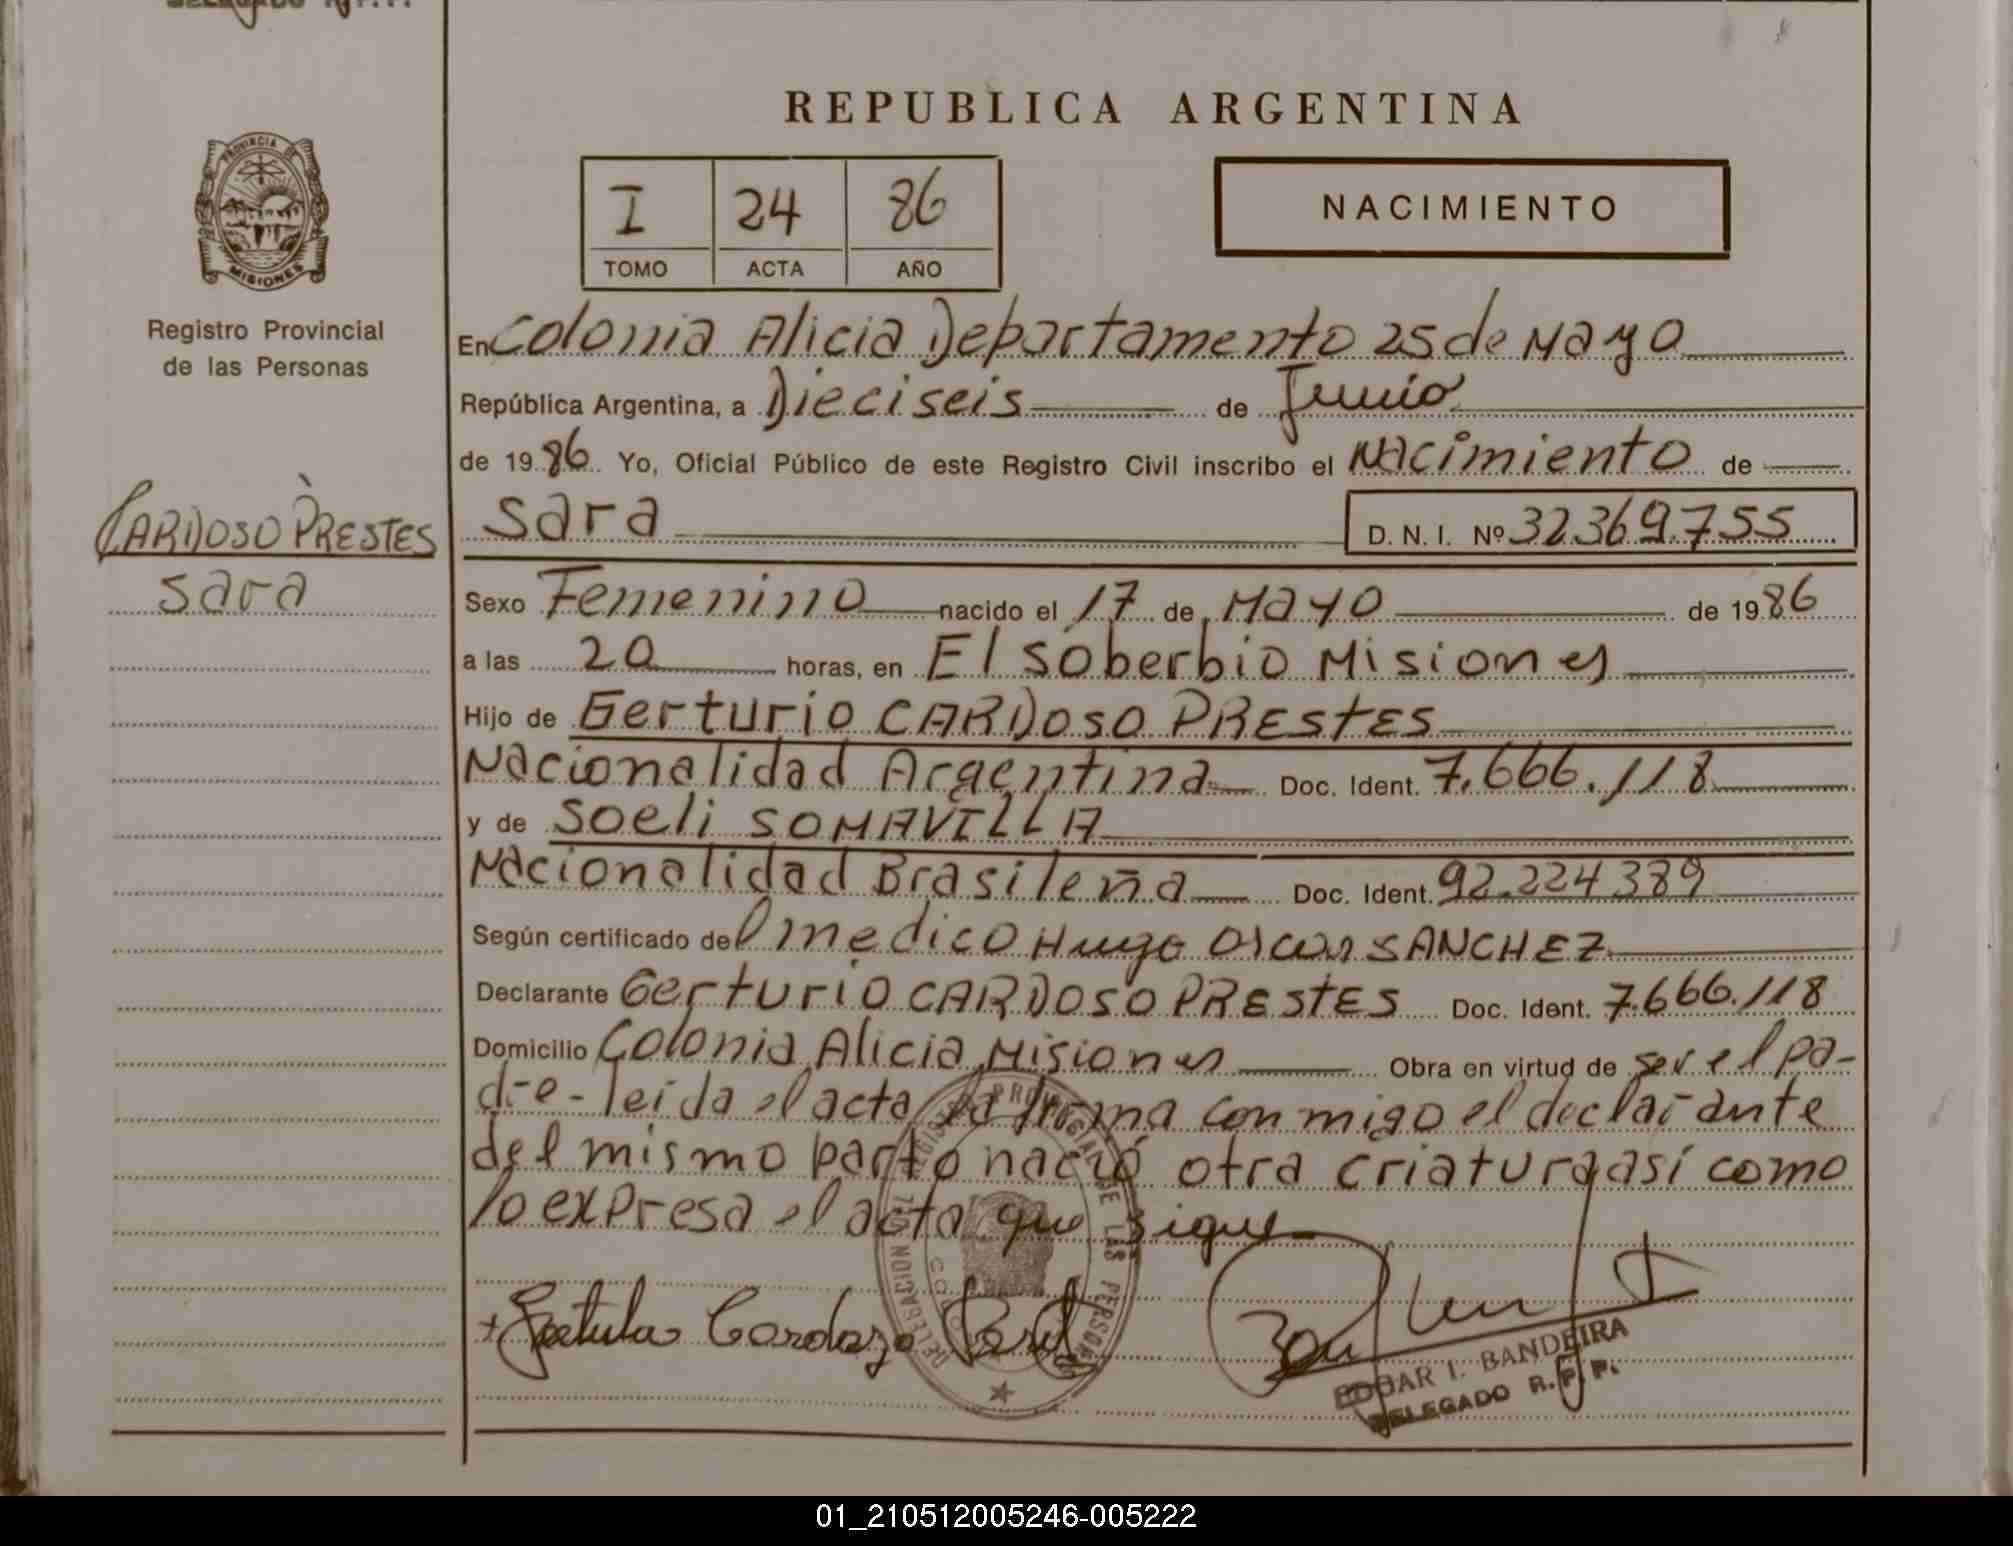 REPUBLICA ARGENTINA
PROVINCIA DE
MISIONES
Registro Provincial
de las Personas
I 24 86
TOMO ACTA AÑO
NACIMIENTO
En Colonia Alicia Departamento 25 de Mayo
República Argentina, a Dieciseis de Junio
de 1986 Yo, Oficial Público de este Registro Civil inscribo el Nacimiento de
Sara D. N. I. Nº 32.369.755
CARDOSO PRESTES
Sara
Sexo Femenino nacido el 17 de Mayo de 1986
a las 20 horas, en El Soberbio Misiones
Hijo de Gerturio CARDOSO PRESTES
Nacionalidad Argentina Doc. Ident. 7.666.118
y de Soeli SOMAVILLA
Nacionalidad Brasileña Doc. Ident. 92.224389
Según certificado del medico Hugo Oscar SANCHEZ
Declarante Gerturio CARDOSO PRESTES Doc. Ident. 7.666.118
Domicilio Colonia Alicia Misiones Obra en virtud de ser el pa-
dre - leida el acta la firma con migo el declarante
del mismo parto nació otra criatura así como
lo expresa el acta que sigue
Cardozo
EDGAR I. BANDEIRA
DELEGADO R.P.P.
01_210512005246-005222